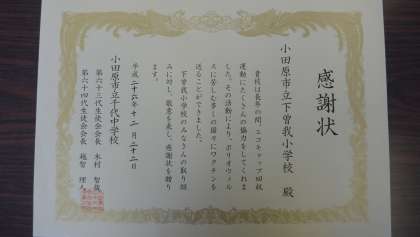 感謝状
小田原市立下曽我小学校 殿
貴校は長年の間、エコキャップ回収
運動にたくさんの協力をしてくれま
した。その活動により、ポリオウイル
スに苦しむ多くの国々にワクチンを
送ることができました。
下曽我小学校のみなさんの取り組
みに対し、敬意を表し、感謝状を贈り
ます。
平成二十六年十二月二十二日
小田原市立千代中学校
第六十三代生徒会会長 木村
第六十四代生徒会会長 越智 理